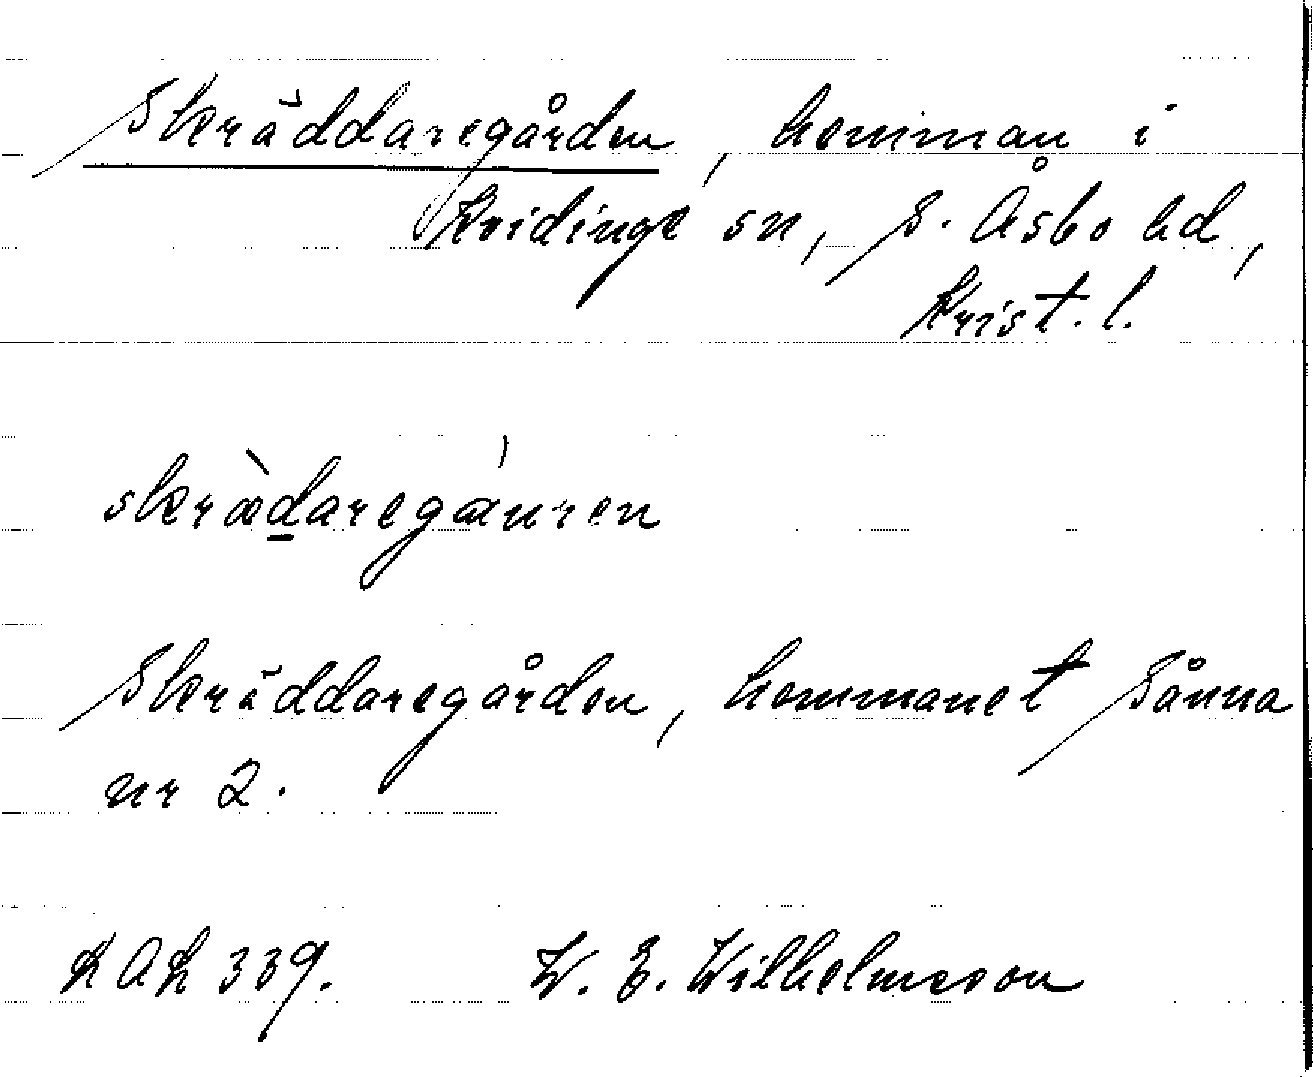 Skräddaregården, hemman i
Kvidinge sn, S. Åsbo hd,
Krist. l.
skræ̀daregæ̍uren
Skräddaregården, hemmanet Sånna
nr 2.
LAL 339. W. E. Wilhelmsson